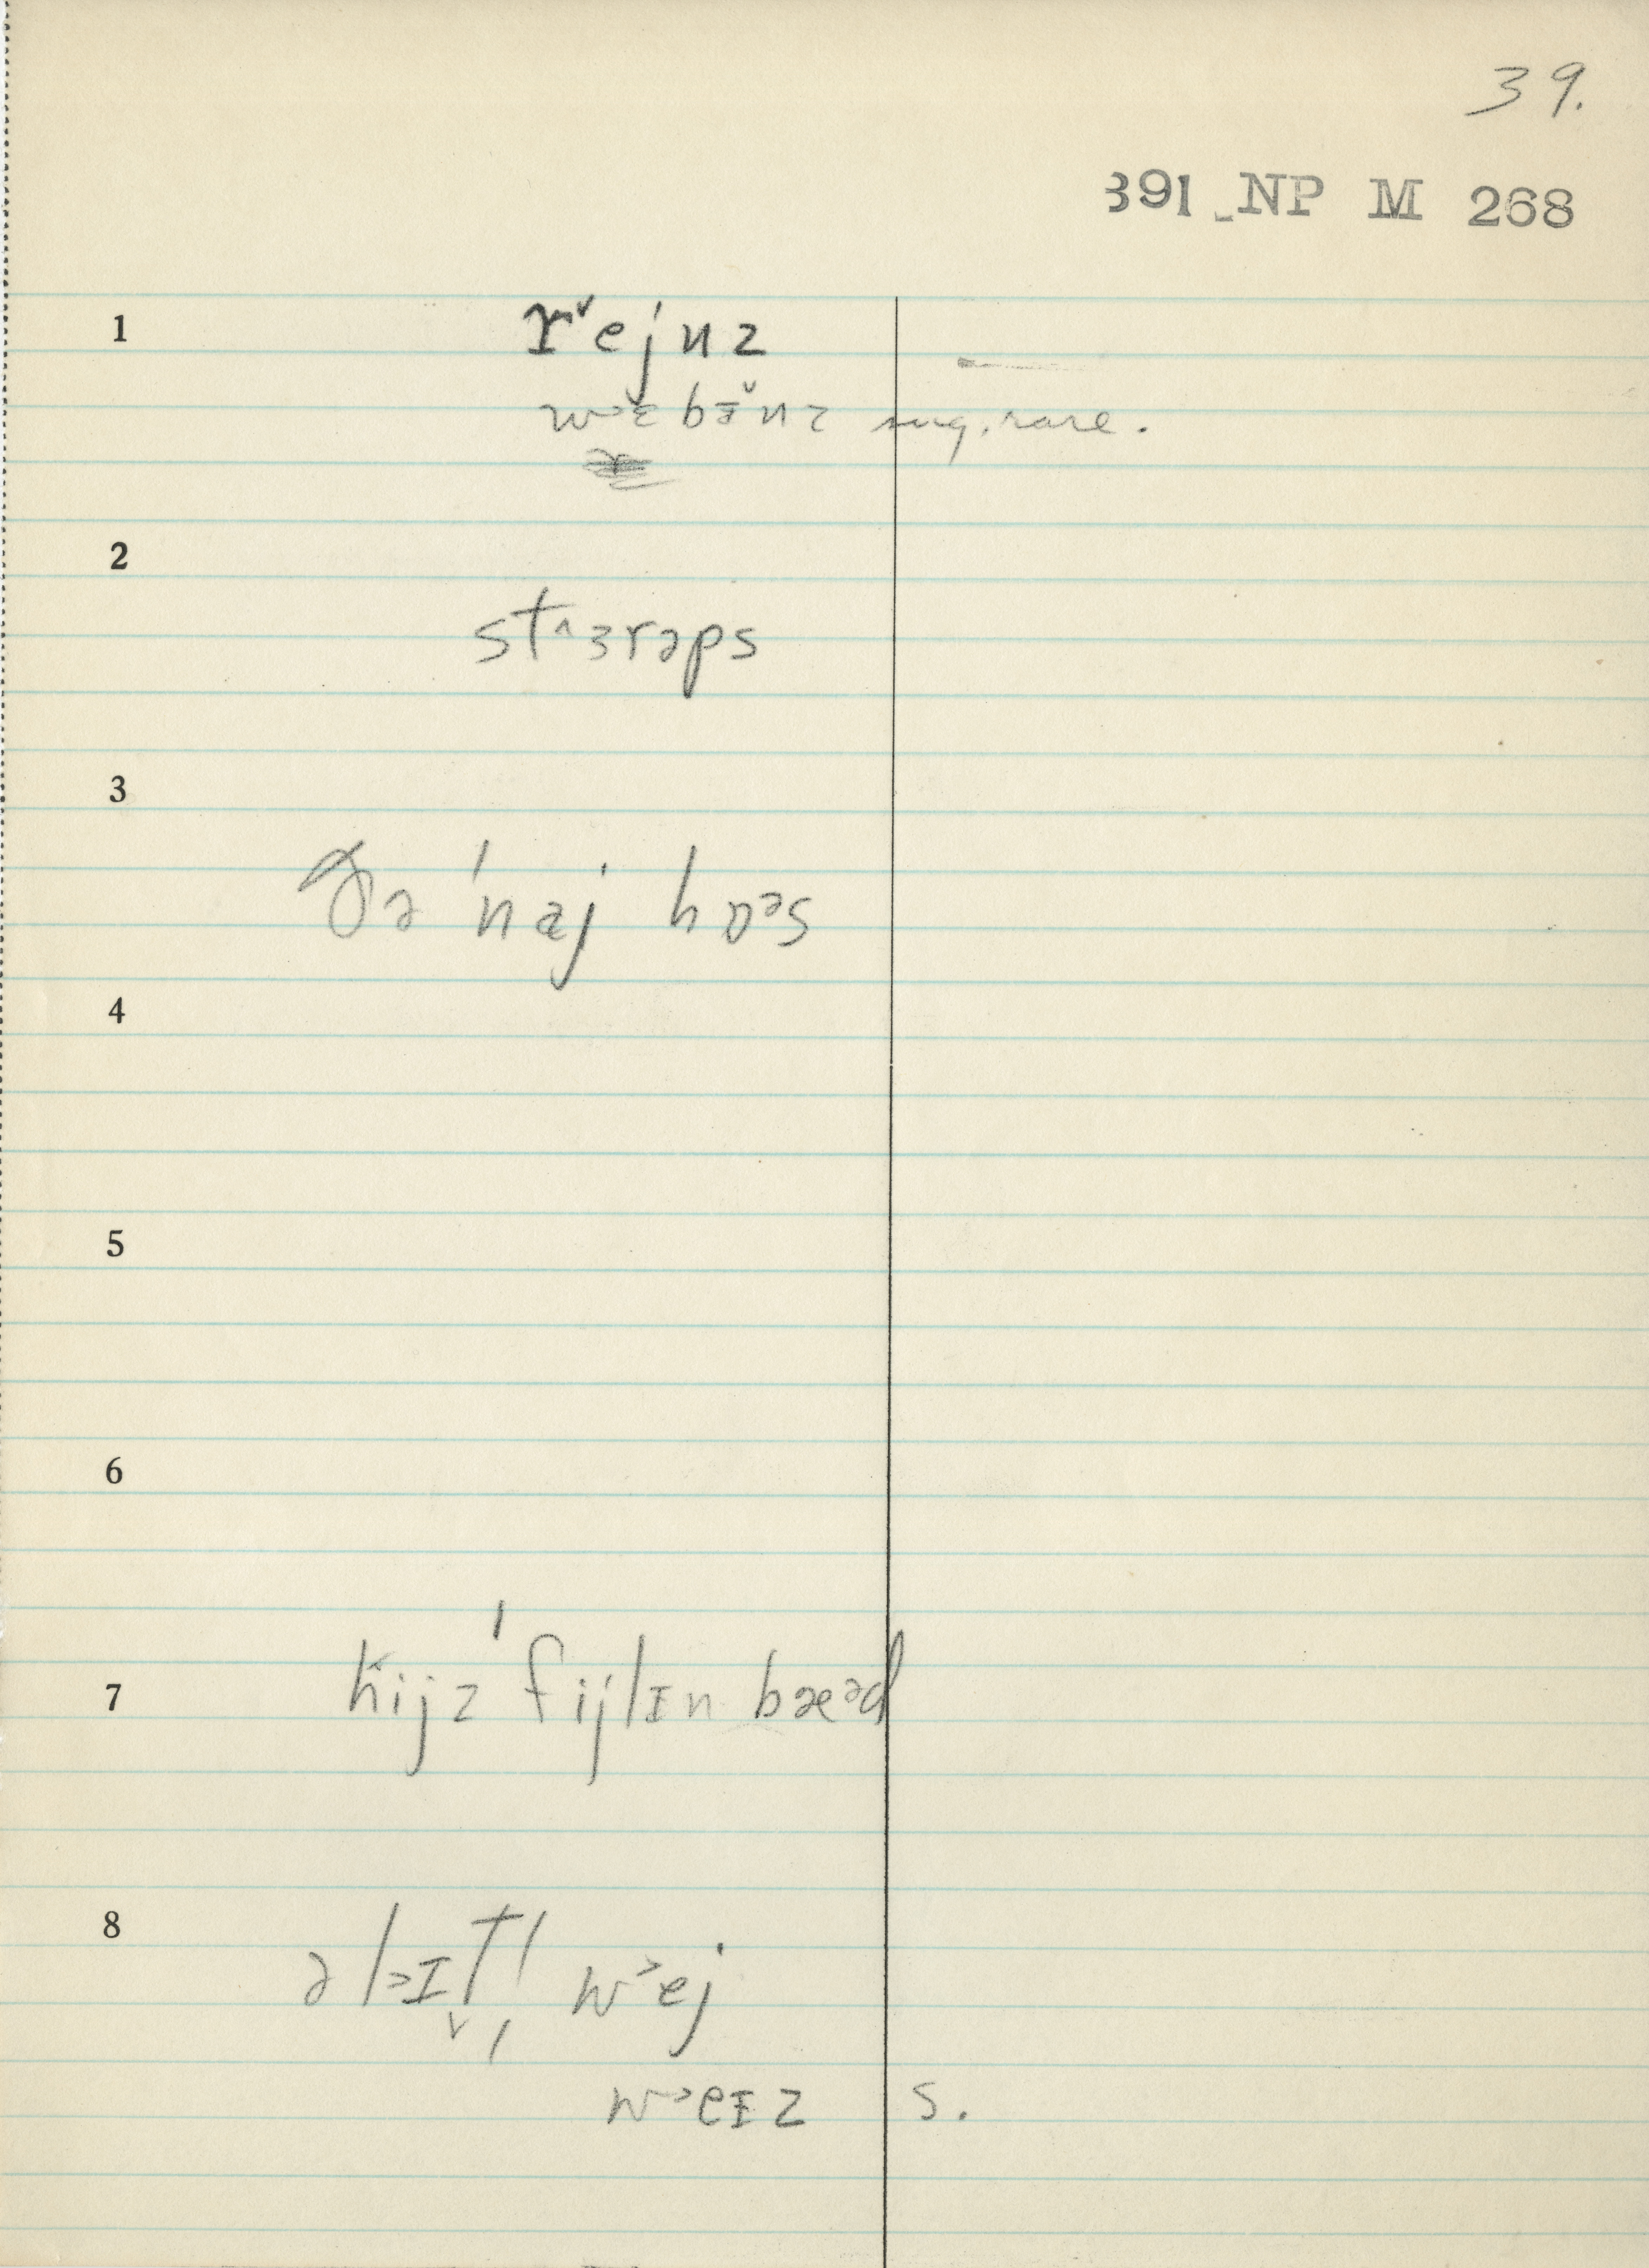 39.
391 NP M 268
1
rˇejnz
w˃ɛbɪ̌nz sug. rare.
2
st^ɜrəps
3
ðə 'naj hɒᵊs
4
5
6
7
hijz 'fijlɪn bæᵊd
8
w˃ej
w˃eɪz s.